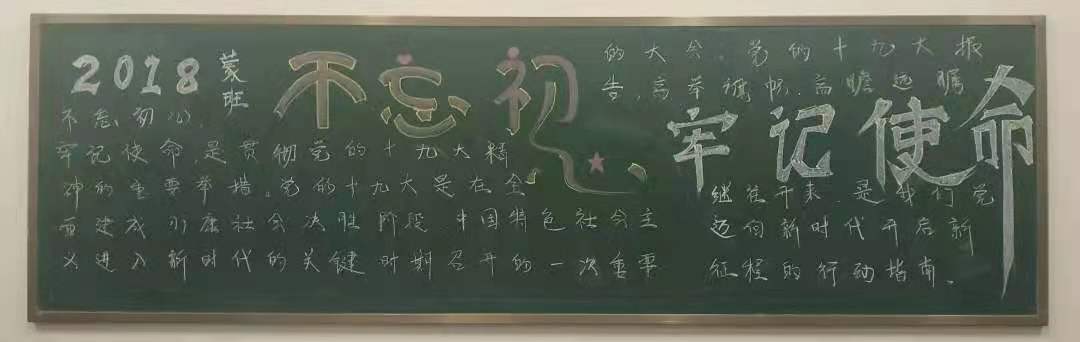 2018
蒙班
不忘初心、
牢记使命
不忘初心,
牢记使命,是贯彻党的十九大精
神的重要举措。党的十九大是在全
面建成小康社会决胜阶段 中国特色社会主
义进入新时代的关键时期召开的一次重要
的大会,党的十九大报
告,高举旗帜,高瞻远瞩
继往开来,是我们党
迈向新时代开启新
征程的行动指南。